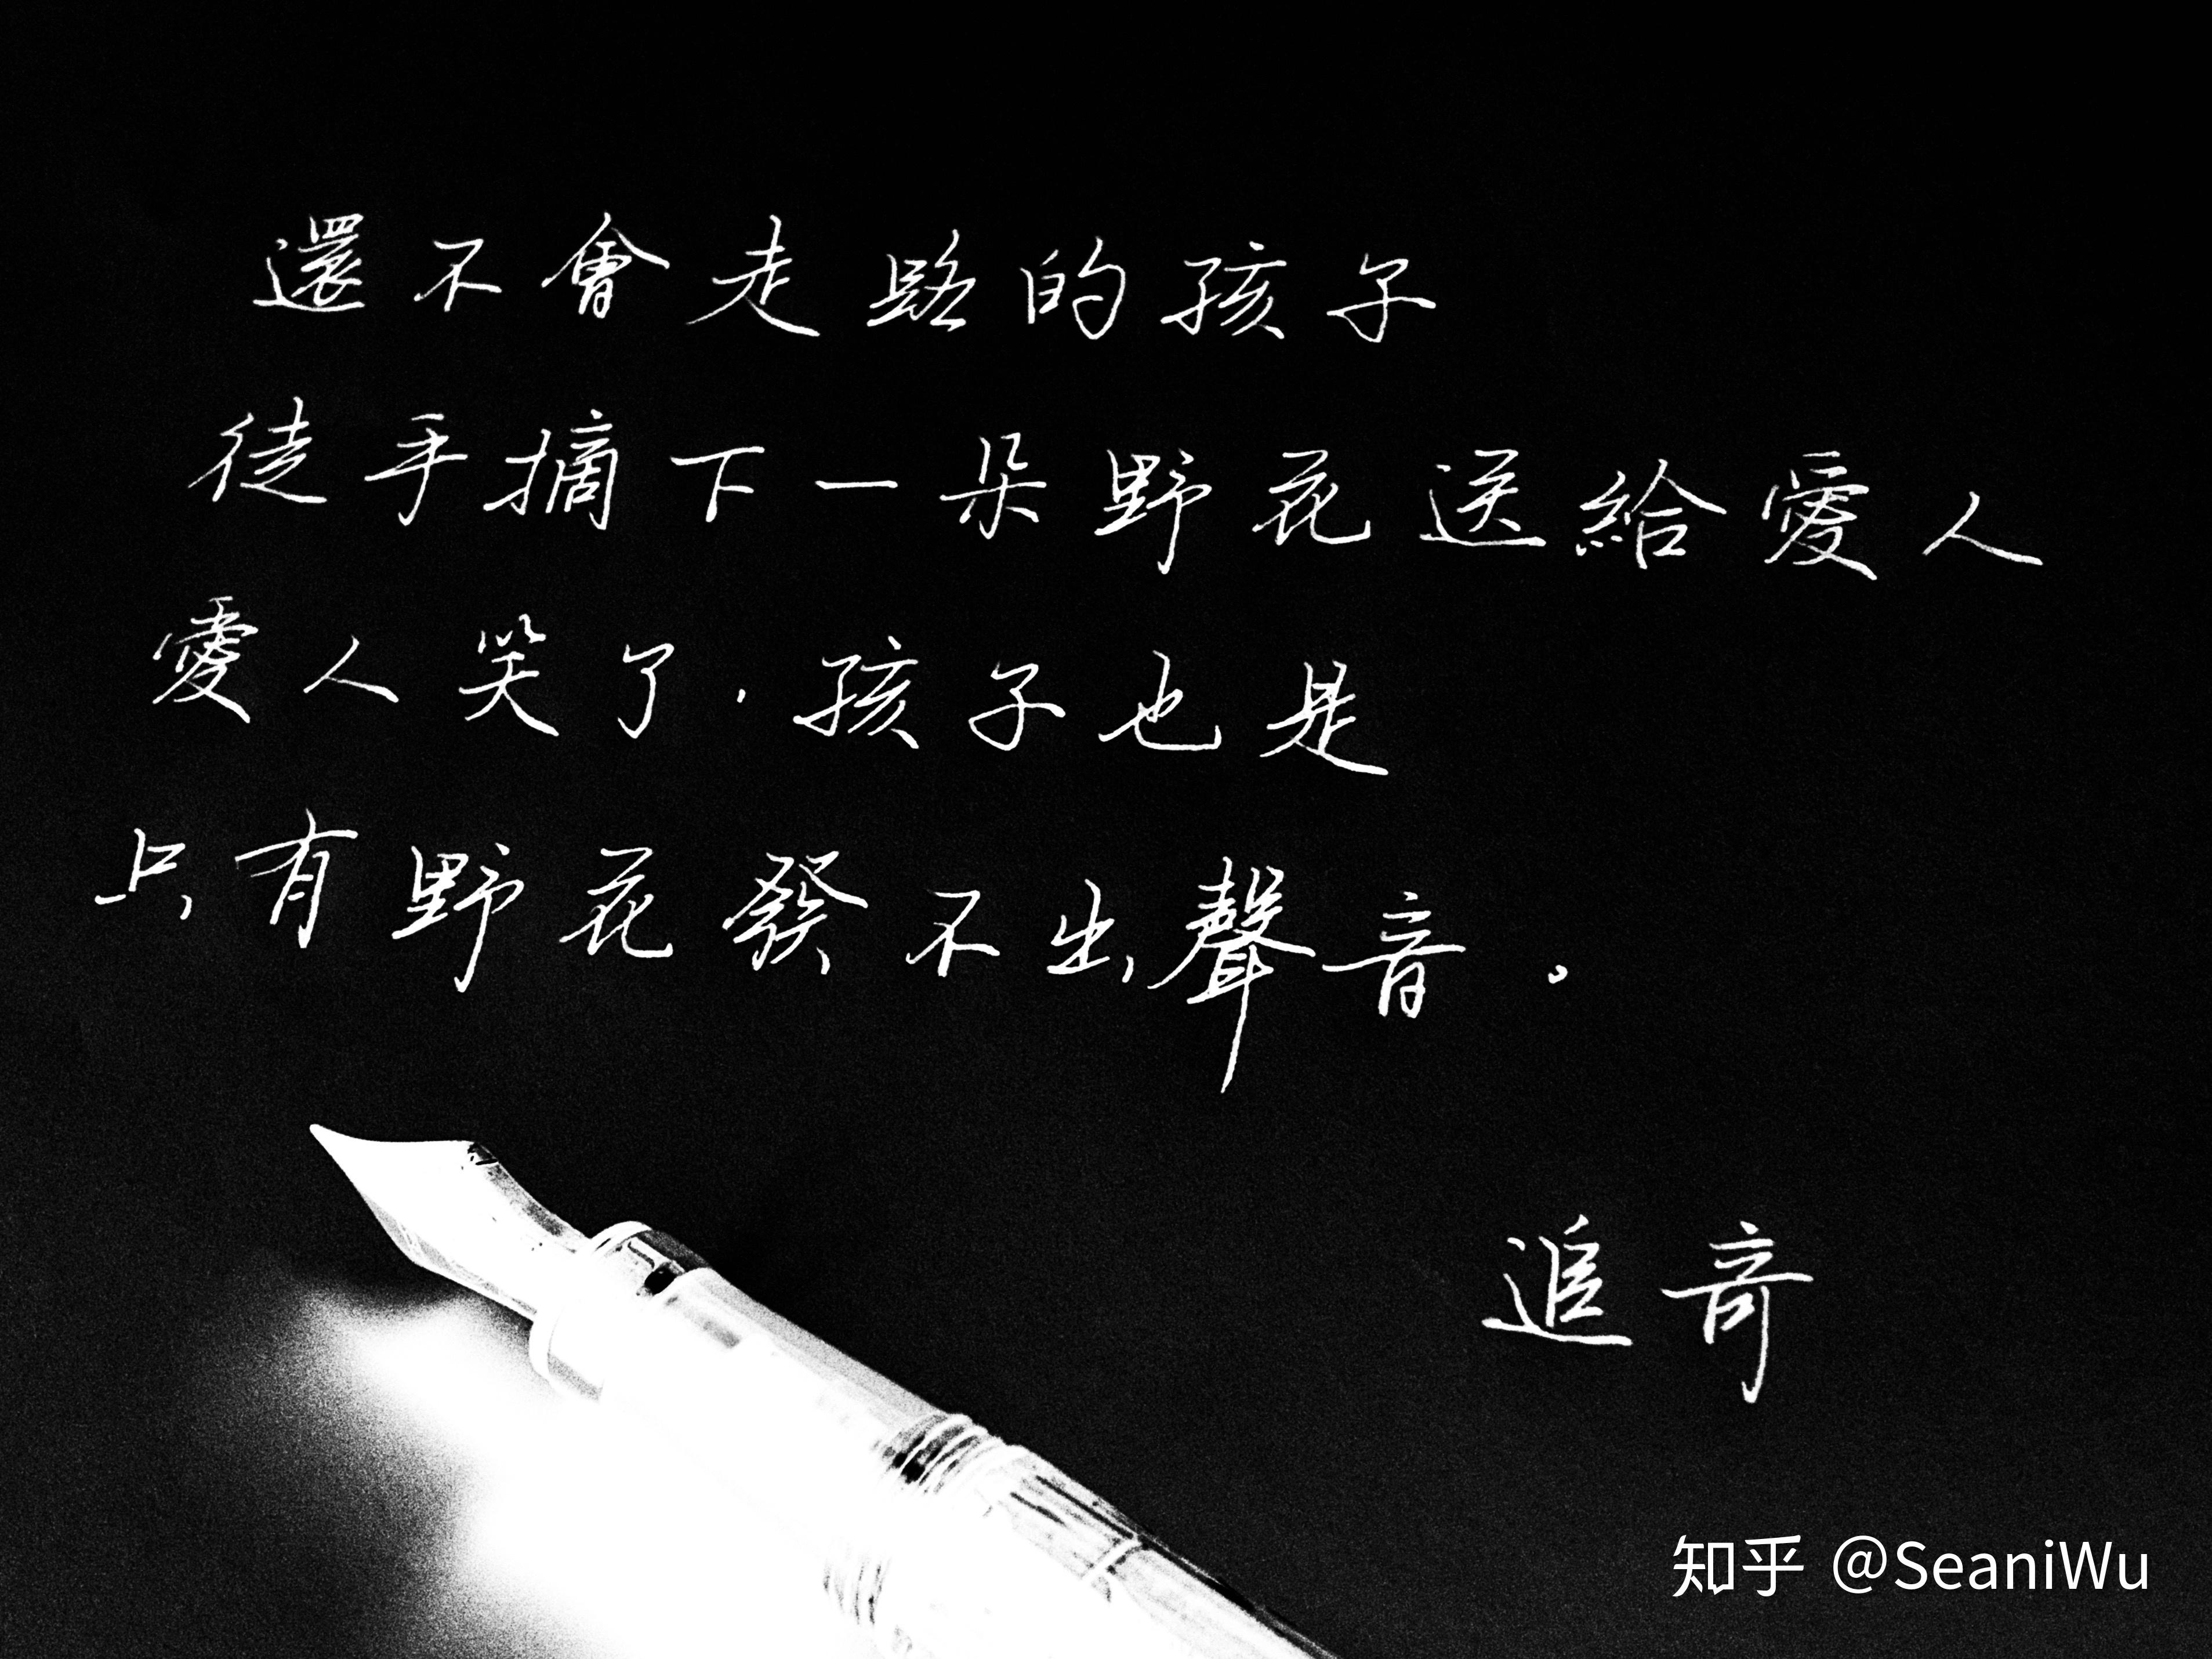 還不會走路的孩子
徒手摘下一朵野花送給愛人
愛人笑了,孩子也是
只有野花發不出聲音。
追音
知乎 @SeaniWu